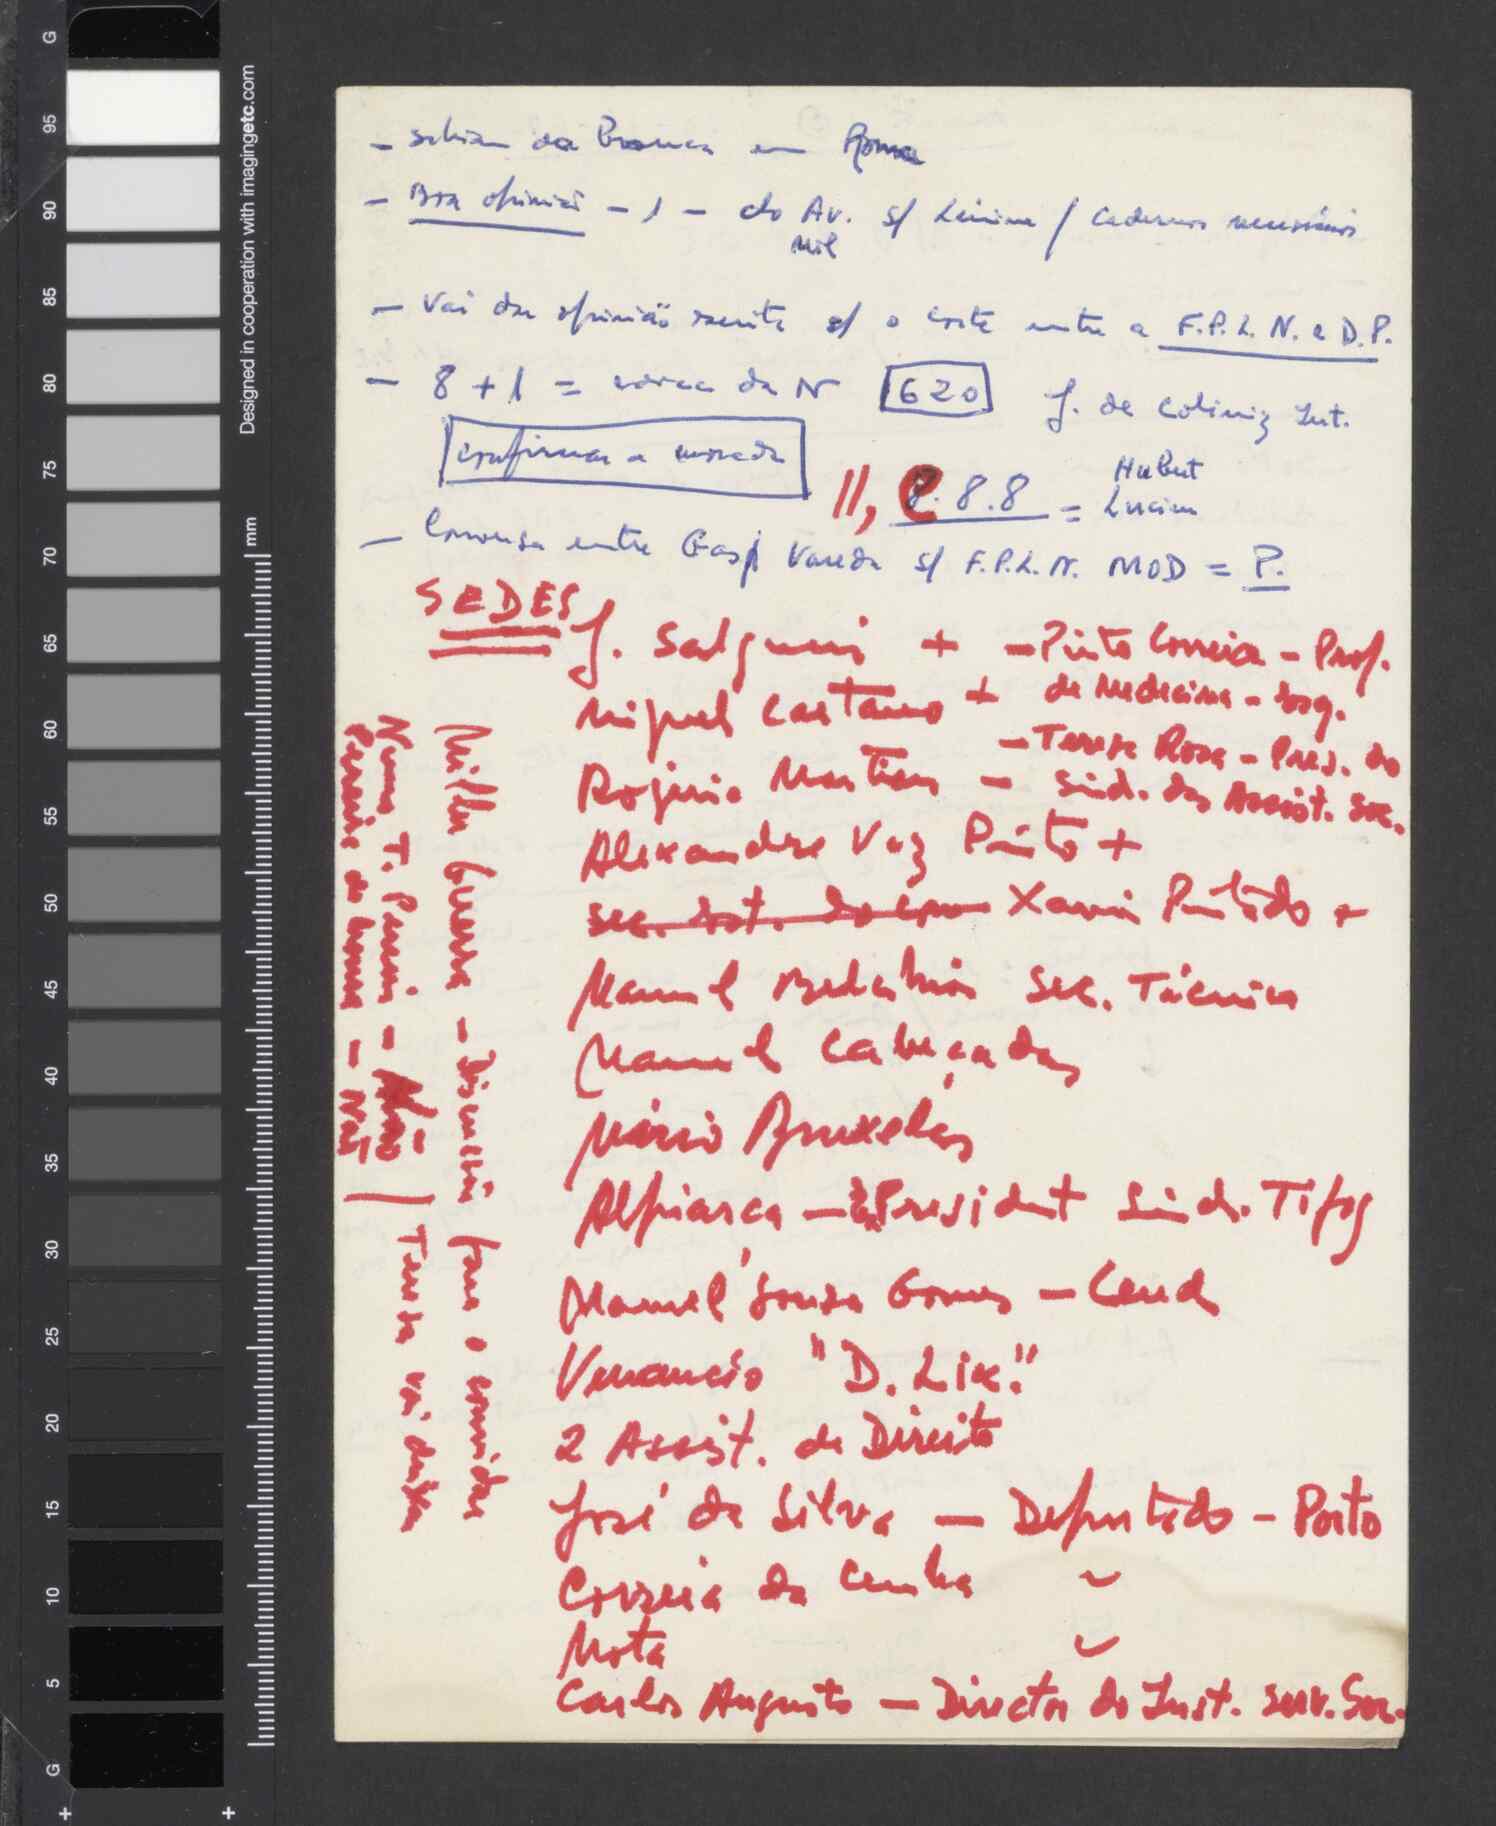 - sabiam da Branca em Roma
- Boa opinião - 1 - do Av. s/ Lénine / Cadernos necessários
Mil
- Vai dar opinião escrita s/ o corte entre a F.P.L.N. e D.P.
- 8 + 1 = da N 620 J. de Coliniz Int.
confirmar a morada
11, 8.8 = Hubert
Lucien
- Conversa entre Gasp Vareda s/ F.P.L.N. MOD = P.
SEDES
J. Salgueiro +
- Pinto Correia - Prof.
de Medicina - Esq.
Miguel Caetano +
- Teresa Rosa - Pres. do
Sind. das Assist. Soc.
Rogério Martins -
Alexandre Vaz Pinto +
Sec. Est. do Com Xavier Pintado +
Manuel Belchior Sec. Técnico
Manuel Cabeçadas
Mário Bruxelas
Alpiarça - President Sind. Tipog
Manuel Sousa Gomes - Ceuda
Venancio "D. Lix."
2 Assist. de Direito
José da Silva - Deputado - Porto
Correia da Cunha ~
Mota ~
Carlos Augusto - Director do Inst. Serv. Soc.
Miller Guerra - Discussão para o convidar
Nuno T. Pereira - Não
Pereira de Moura - Não
Teresa vai deixar
G
95
90
85
80
75
70
65
60
55
50
45
40
35
30
25
20
15
10
5
G
Designed in cooperation with imagingetc.com
mm